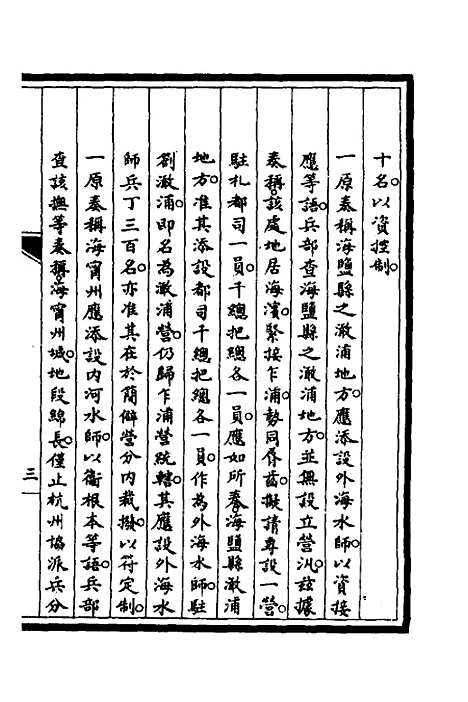 十名。以資控制。
一原奏稱海鹽縣之澉浦地方。應添設外海水師。以資接
應等語。兵部查海鹽縣之澉浦地方。並無設立營汛。茲據
奏稱。該處地居海濱。緊接乍浦。勢同脣齒。擬請專設一營。
駐札都司一員。千總把總各一員。應如所奏。海鹽縣澉浦
地方。准其添設都司千總把總各一員。作為外海水師。駐
劄澉浦。即名為澉浦營。仍歸乍浦營統轄。其應設外海水
師兵丁三百名。亦准其在於簡僻營分內裁撥。以符定制。
一原奏稱海甯州應添設內河水師。以衞根本等語。兵部
查該撫等奏稱。海甯州城。地段綿長。僅止杭州協派兵分
三